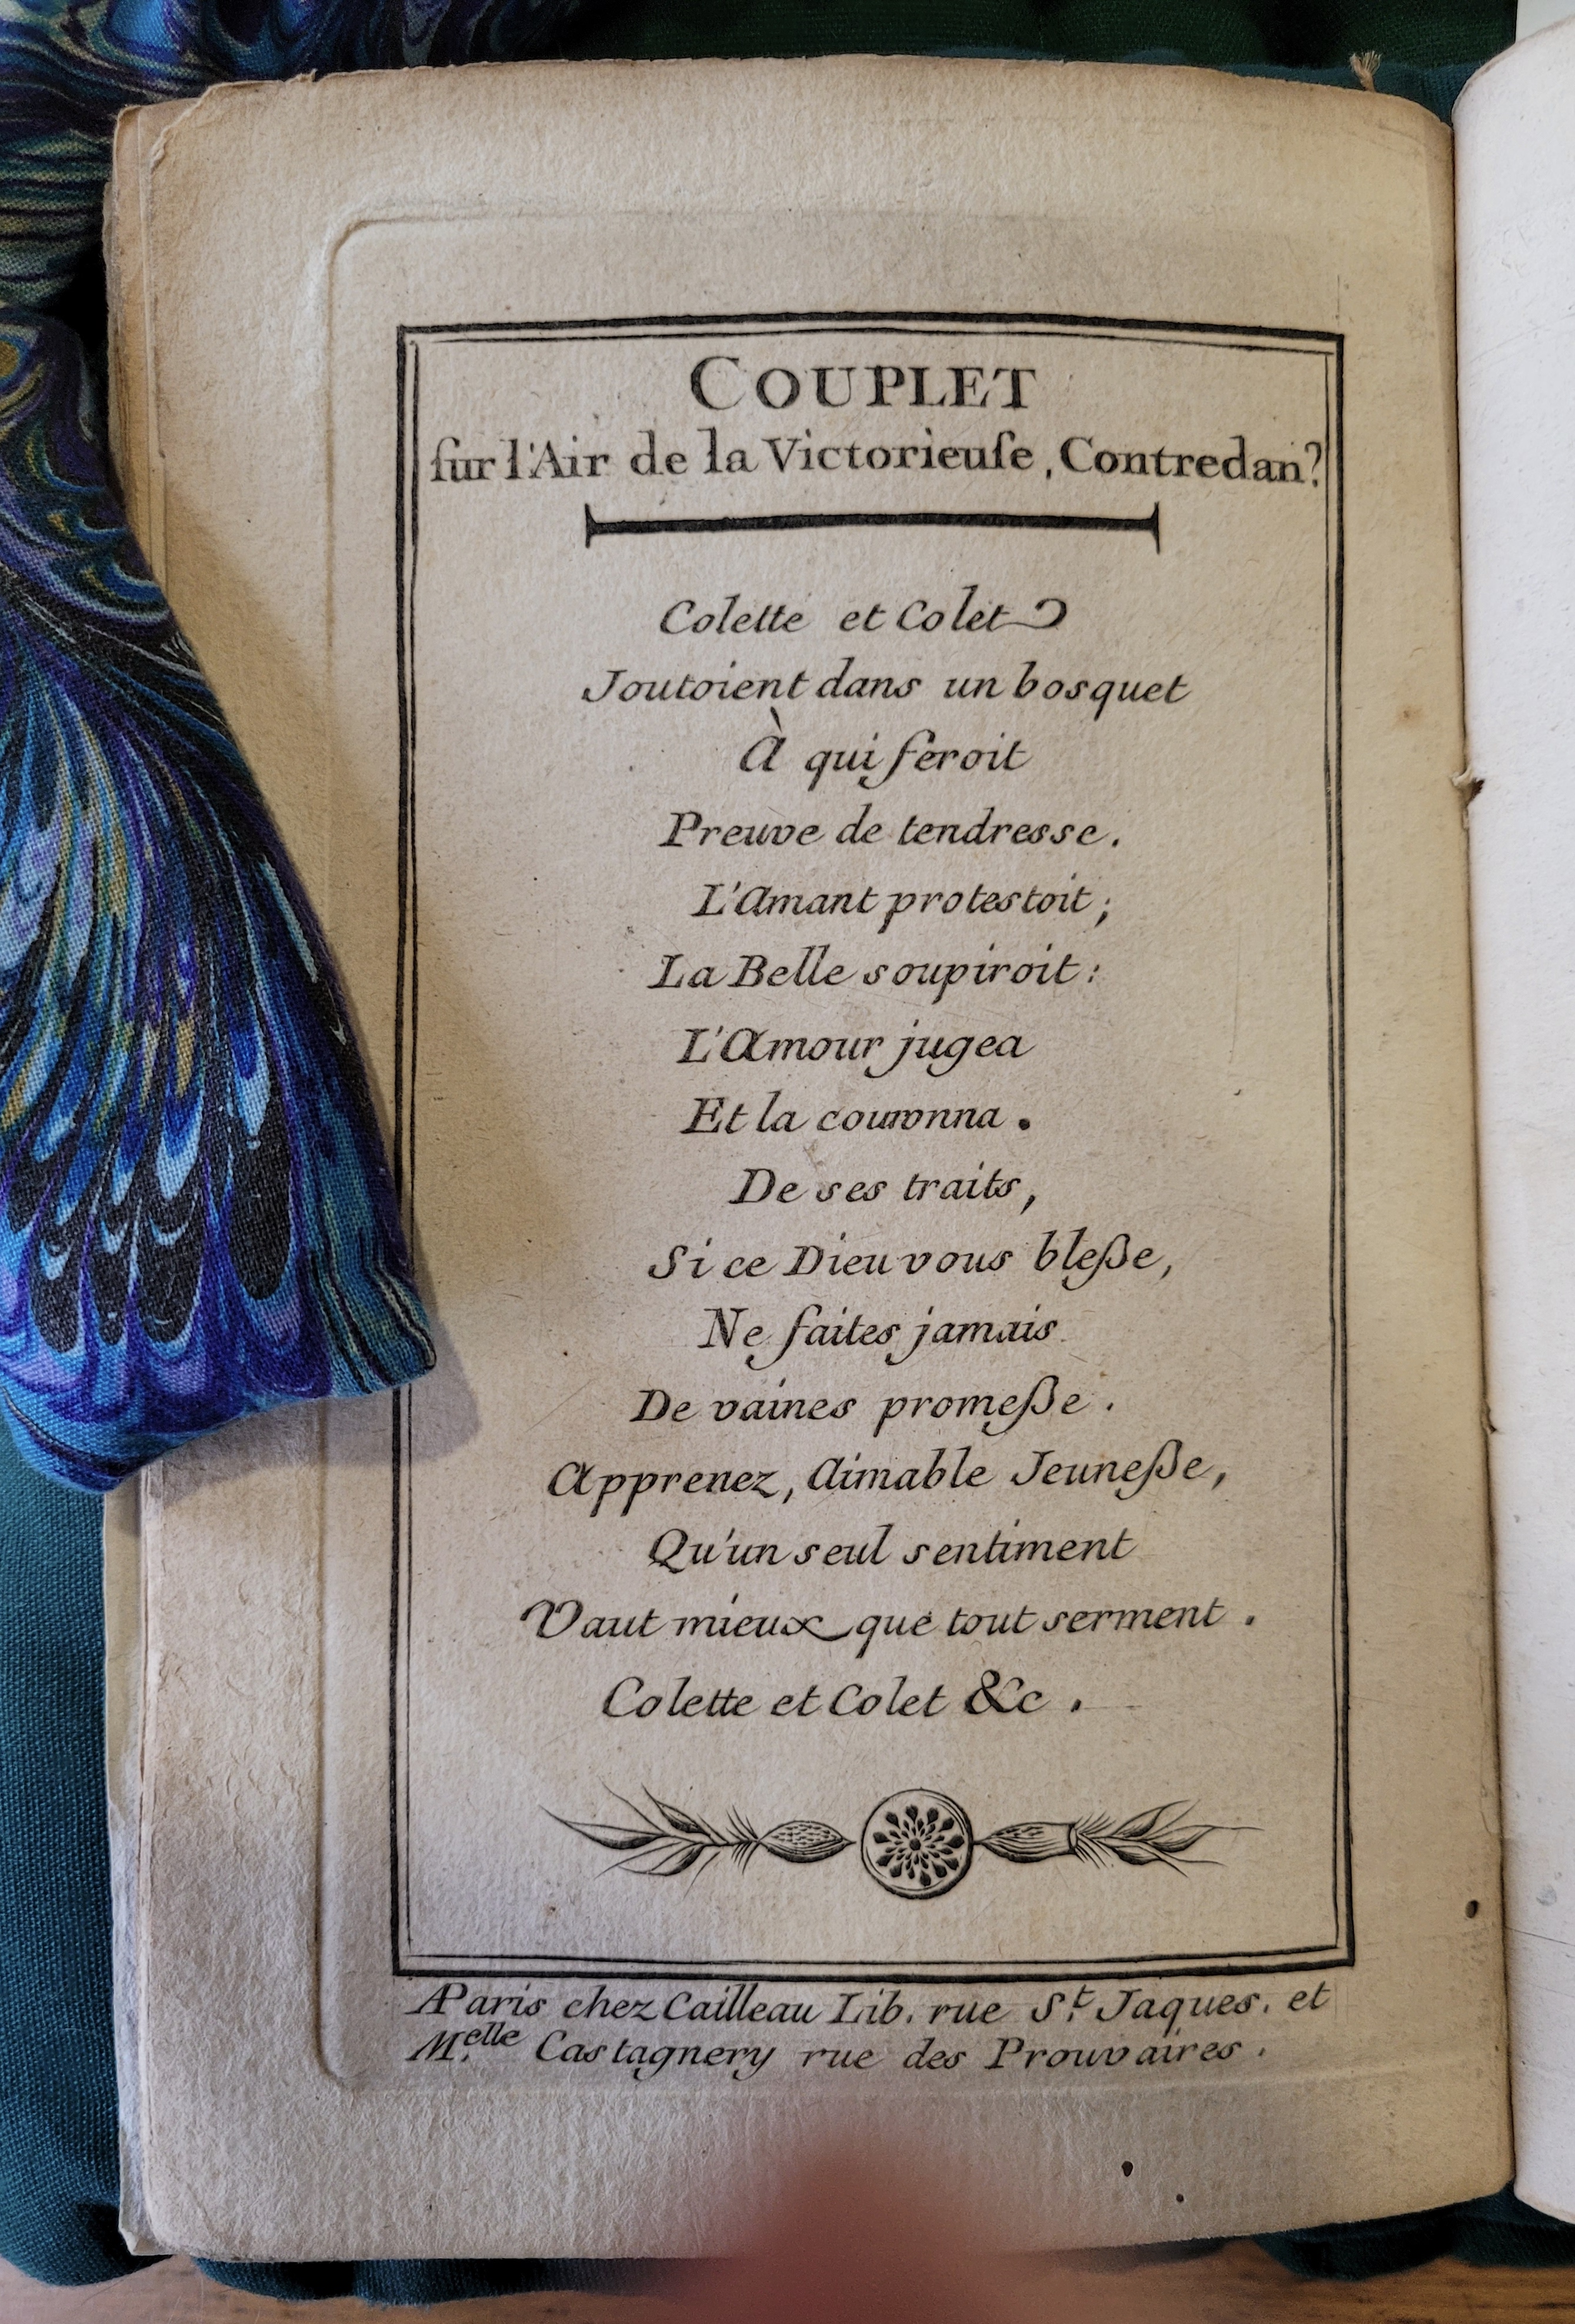 COUPLET
ſur l'Air de la Victorieuſe, Contredan?
Colette et Colet
Joutoient dans un bosquet
À qui feroit
Preuve de tendresse.
L'Amant protestoit;
La Belle soupiroit:
L'Amour jugea
Et la couronna.
De ses traits,
Si ce Dieu vous bleße,
Ne faites jamais
De vaines promeße.
Apprenez, Aimable Jeuneße,
Qu'un seul sentiment
Vaut mieux que tout serment.
Colette et Colet &c.
A Paris chez Cailleau Lib. rue St. Jaques. et
Melle. Castagnery rue des Prouvaires.